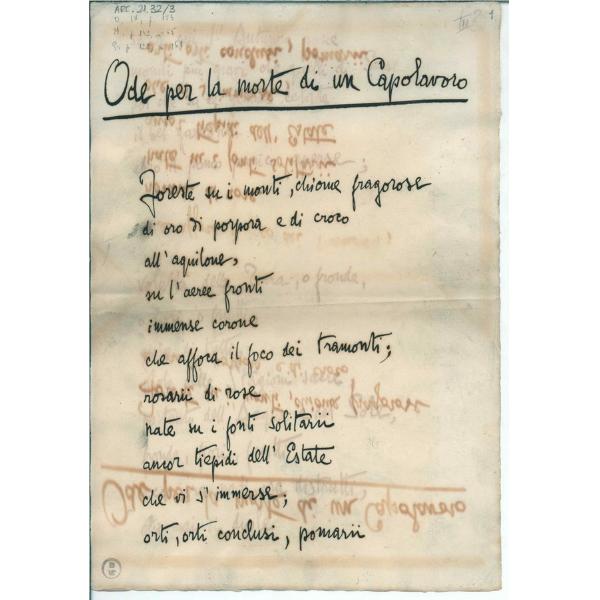 ARC. 21.32/3
1
Ode per la morte di un Capolavoro
Foreste su i monti, chiome fragorose
di oro di porpora e di croco
all'aquilone,
su l'aeree fronti
immense corone
che affoca il foco dei tramonti;
rosarii di rose
nate su i fonti solitarii
ancor tiepidi dell'Estate
che vi s'immerse;
orti, orti conclusi, pomarii